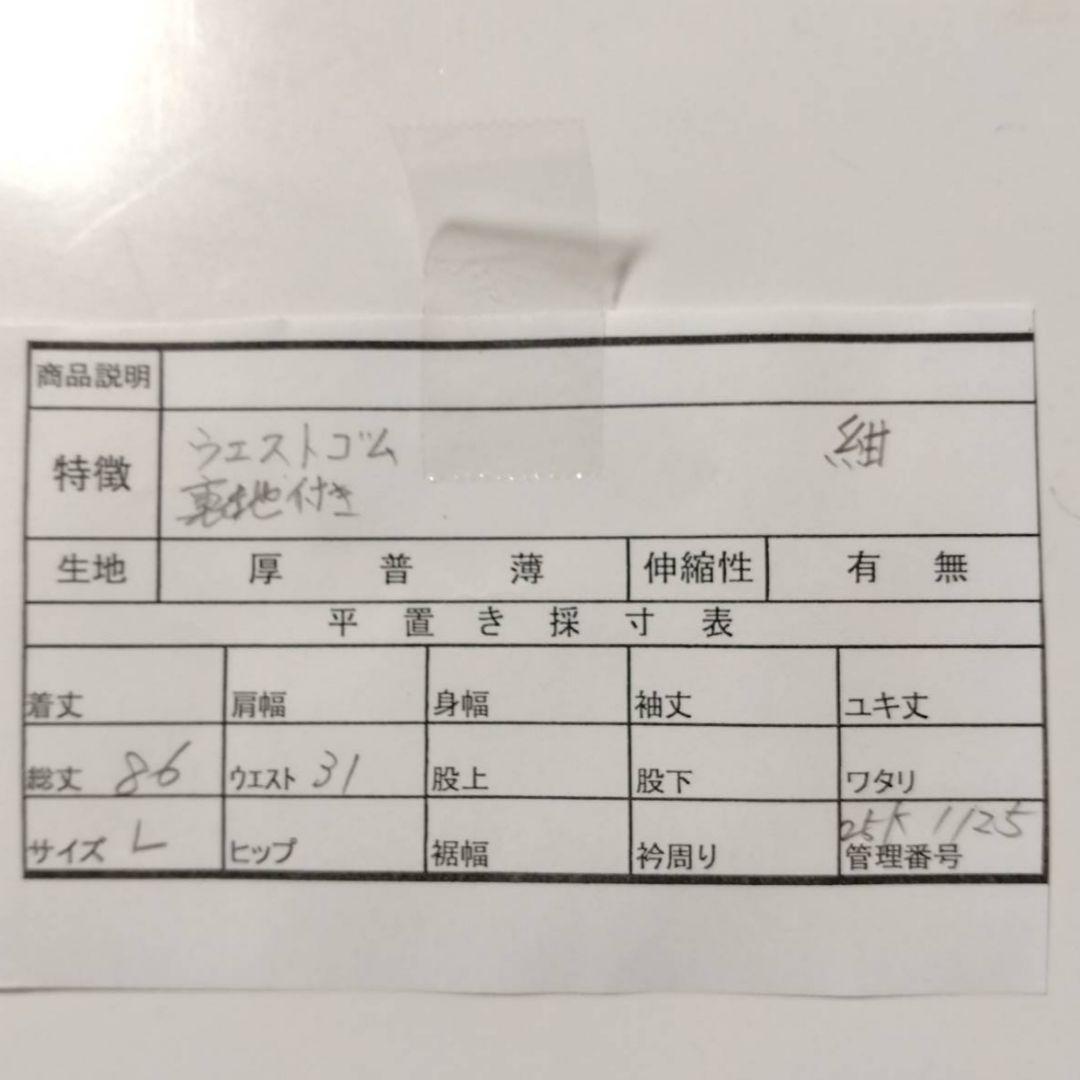 商品説明
特徴 ウエストゴム 紺
裏地付き
生地 厚 普 薄 伸縮性 有 無
平置き採寸表
着丈 肩幅 身幅 袖丈 ユキ丈
総丈 86 ウエスト 31 股上 股下 ワタリ
25K 1125
サイズ L ヒップ 裾幅 衿周り 管理番号